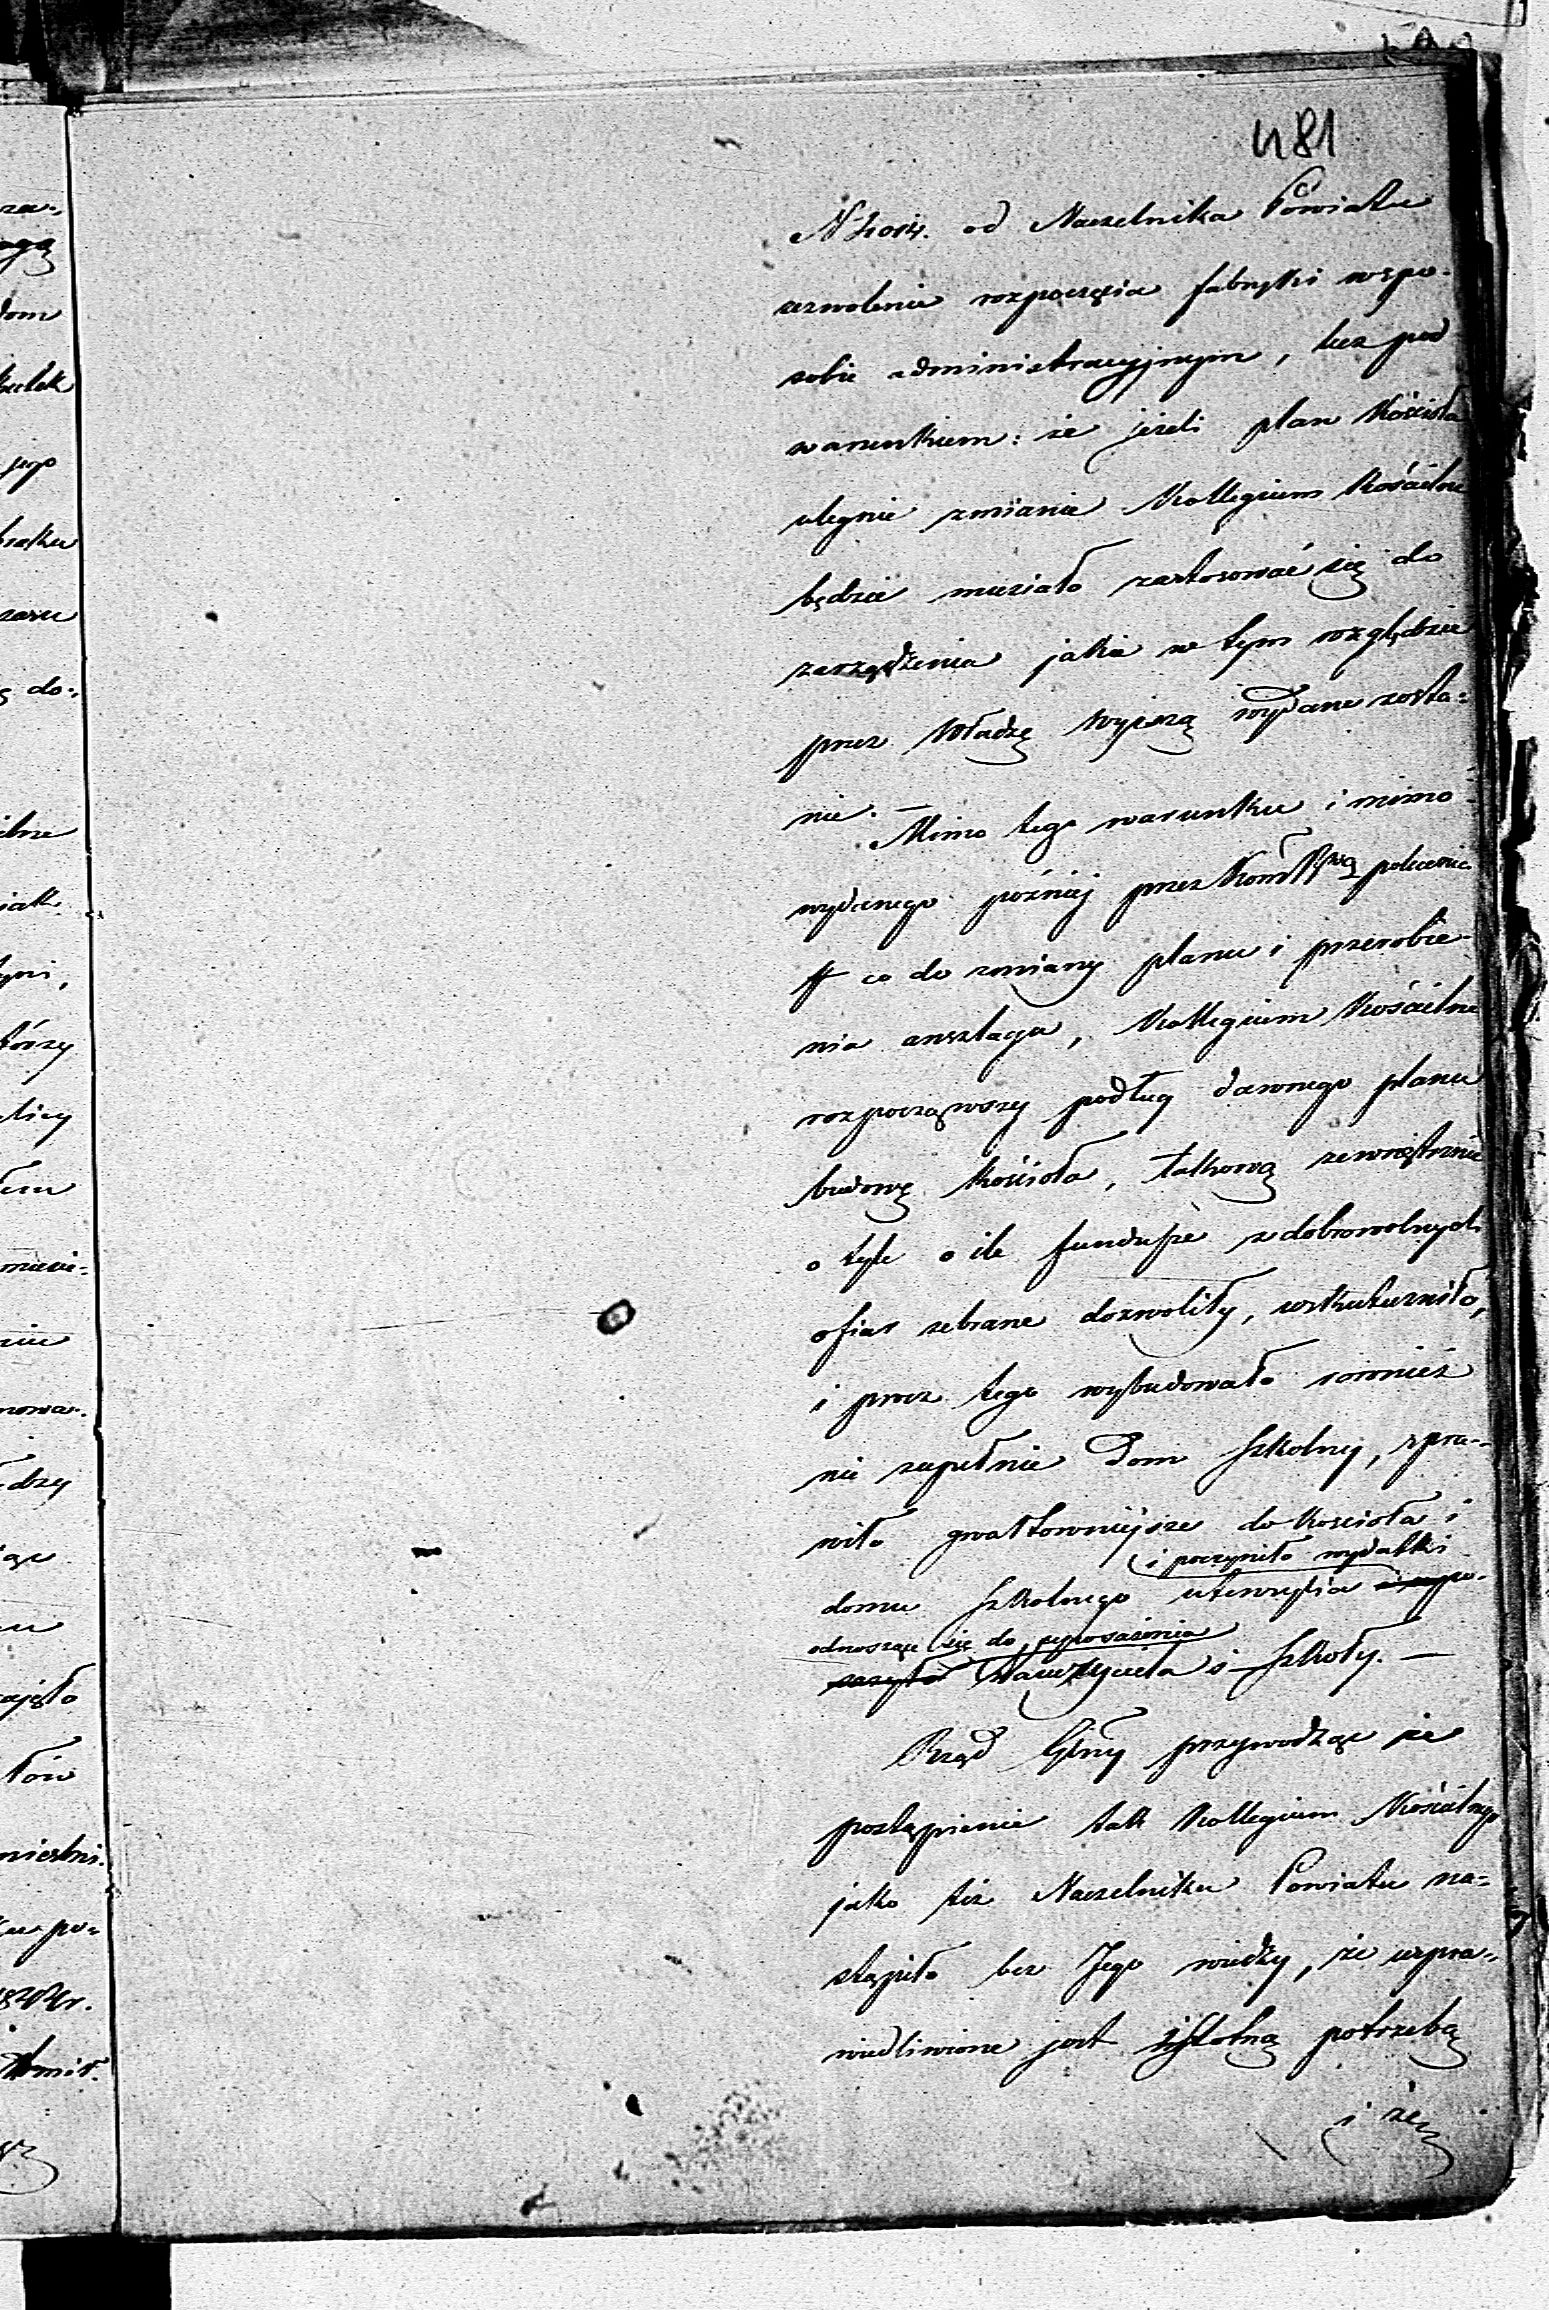 481
od Naczelnika Powiatu
zezwolenie rozpoczęcia fabryki wspo-
sobie administracyjnym, lecz pod
warunkiem: że jeżeli plan Kościoła
ulegnie zmianie Kollegium Kościelne
będzie musiało zastosować się do
zarządzenia jakie w tym względzie
przez Władzę wyższą wydane zosta-
nie. — Mimo tego warunku i mimo
wydanego później przez Kom Rzą polecenia
co do zmiany planu i przerobie-
nia anszlagu, Kollegium Kościelne
rozpocząwszy podług dawnego planu
budowę Kościoła, takową zewnętrznie
o tyle o ile fundusze z dobrowolnych
ofiar zebrane dozwoliły, uskuteczniło,
i procz tego wybudowało rownież
nie zupełnie Dom Szkolny, spra-
wiło gwałtowniejsze do Kościoła i
i poczyniło wydatki
domu Szkolnego utensylia po-
odnoszące się do uposażenia
Nauczyciela i Szkoły. —
Rząd Gbny przywodząc że
postąpienie tak Kollegium Kościelnego
jako też Naczelnika Powiatu na-
stąpiło bez Jego wiedzy, że uspra-
wiedliwione jest istotną potrzebą
i że
zar-
dom
jego
do-
tórzy
łów
po-